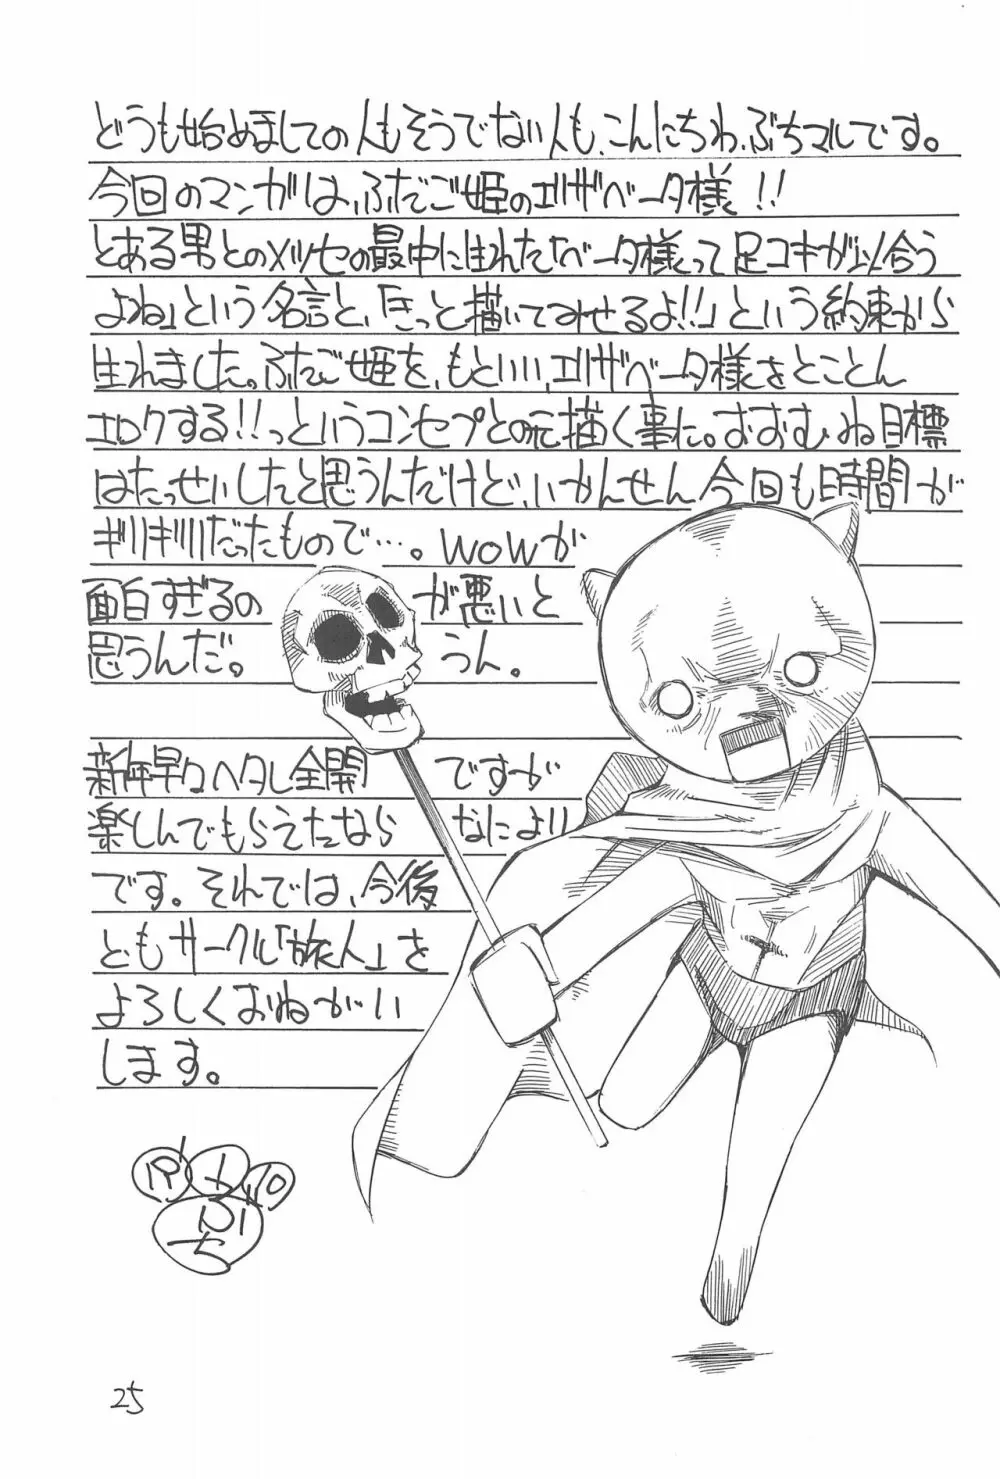 どうも始めましての人もそうでない人も、こんにちわ、ぶちマルです。
今回のマンガは、ふたご姫のエリザベータ様!!
とある男とのメッセの最中に生れた「ベータ様って足コキが以合う
よね」という名言と、「きっと描いてみせるよ!!」という約束から
生れました。ふたご姫を、もといい、エリザベータ様をとことん
エロクする!!っというコンセプとの元描く事に。おおむね目標
はたっせいしたと思うんだけど、いかんせん今回も時間が
ギリギリだったもので…。WOWが
面白すぎるの が悪いと
思うんだ。 うん。
新年早々ヘタレ全開 ですが
楽しんでもらえたなら なにより
です。それでは、今後
ともサークル「旅人」を
よろしくおねがい
します。
ぶち
25